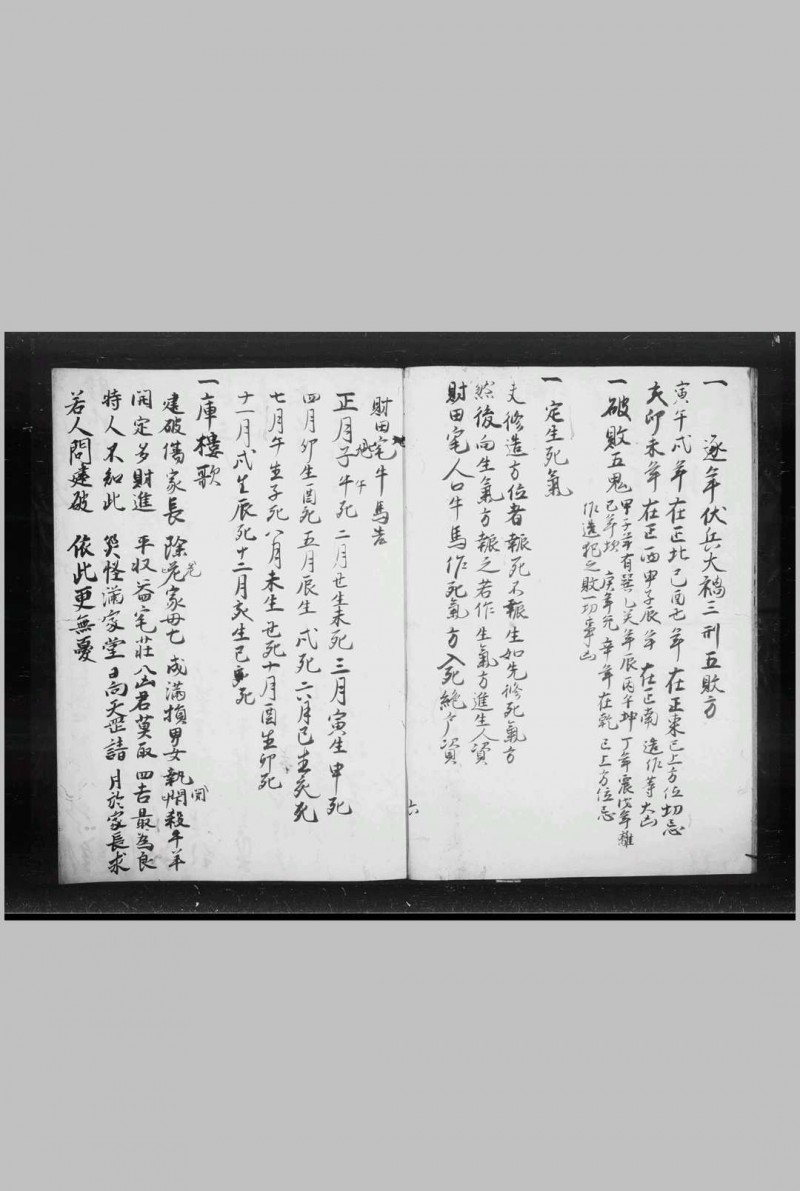 一 逐年伏兵大禍三刑五敗方
寅午戌年 在正北 巳酉七年 在正東 已上方位切忌
亥卯未年 在正西 甲子辰年 在正南 造作等大凶
一 破敗五鬼 甲子年有巽 乙癸年辰 丙午坤 丁年震 戊年離
己年坎 庚年兌 辛年在乾 已上方位忌
作造犯之敗一切事凶
一 定生死氣
夫修造方位者報死不報生如先修死氣方
然後向生氣方報之若作生氣方進生人資
財田宅人口牛馬作死氣方入死絕戶資
財田宅牛馬
地
正月子生午死 二月丑生未死 三月寅生申死
四月卯生酉死 五月辰生戌死 六月巳生亥死
七月午生子死 八月未生丑死 十月酉生卯死
十一月戌生辰死 十二月亥生巳死
一庫樓歌
建破傷家長 除危家母亡 成滿損男女 執閉殺牛羊
開定多財進 平收益宅莊 八凶君莫取 四吉最為良
時人不知此 災怪滿家堂 日向天罡請 月於家長求
若人問建破 依此更無憂
六